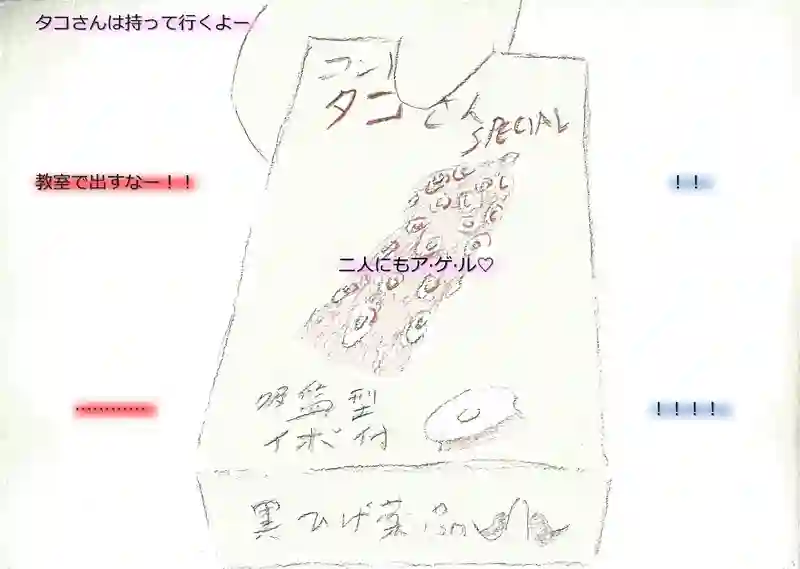 タコさんは持って行くよー
コン
タコさん
SPECIAL
教室で出すなー！！
！！
二人にもア・ゲ・ル♡
吸盤型
イボ付
…………
！！！！
黒ひげ薬